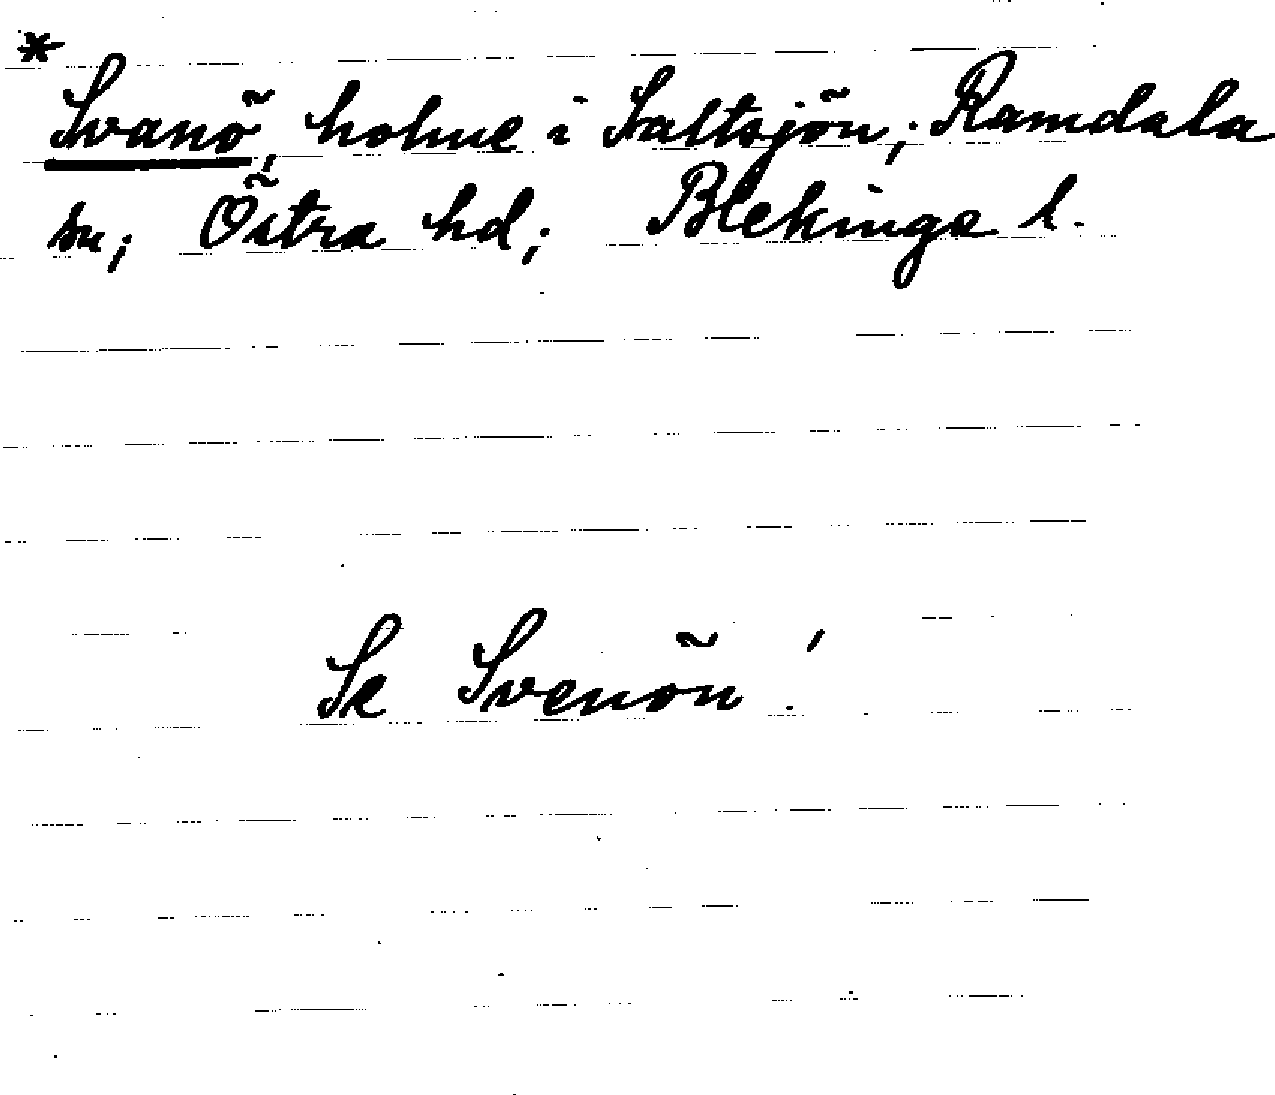 *
Svanö, holme i Saltsjön; Ramdala
sn; Östra hd; Blekinge l.
Se Svenön!